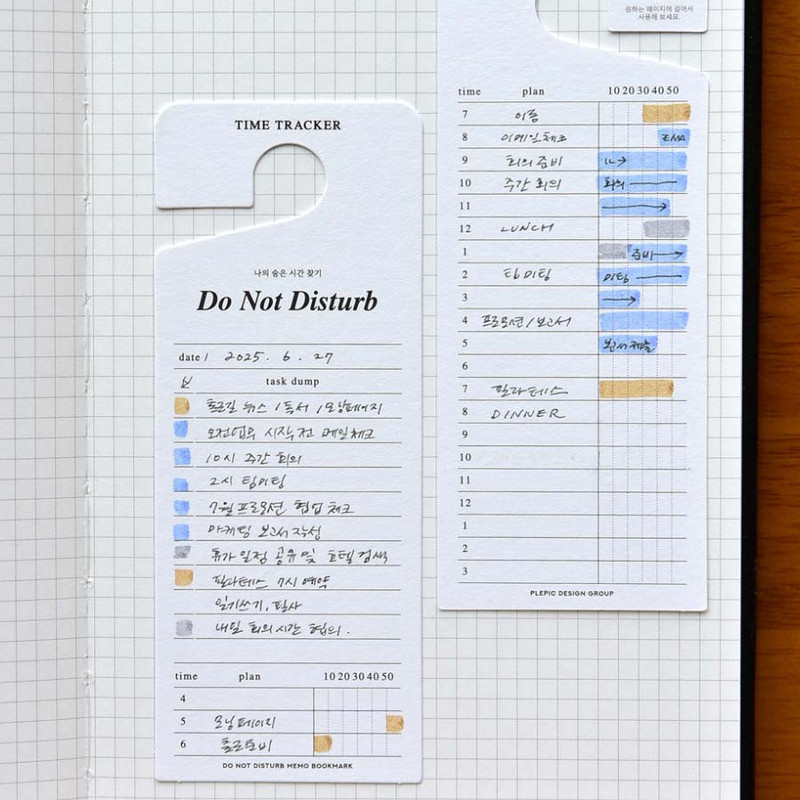 원하는 페이지에 걸어서
사용해 보세요.
TIME TRACKER
나의 숨은 시간 찾기
Do Not Disturb
date / 2025. 6. 27
task dump
출근길 뉴스 / 독서 / 모닝페이지
오전업무 시작 전 메일체크
10시 주간 회의
2시 팀미팅
7월 프로모션 협업 체크
마케팅 보고서 작성
휴가 일정 공유 및 호텔 검색
필라테스 7시 예약
일기쓰기, 필사
내일 회의 시간 협의.
time plan 10 20 30 40 50
4
5 모닝페이지
6 출근준비
DO NOT DISTURB MEMO BOOKMARK
time plan 10 20 30 40 50
7 이동
8 이메일체크
9 회의 준비
10 주간 회의 회의
11
12 LUNCH
1 준비
2 팀미팅 미팅
3
4 프로모션 / 보고서
5 보고서 제출
6
7 필라테스
8 DINNER
9
10
11
12
1
2
3
PLEPIC DESIGN GROUP